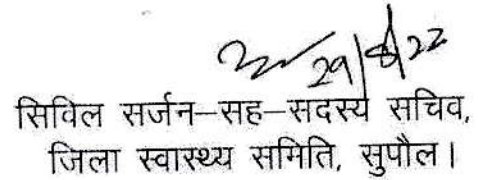 29/8/22
सिविल सर्जन–सह–सदस्य सचिव,
जिला स्वास्थ्य समिति, सुपौल।